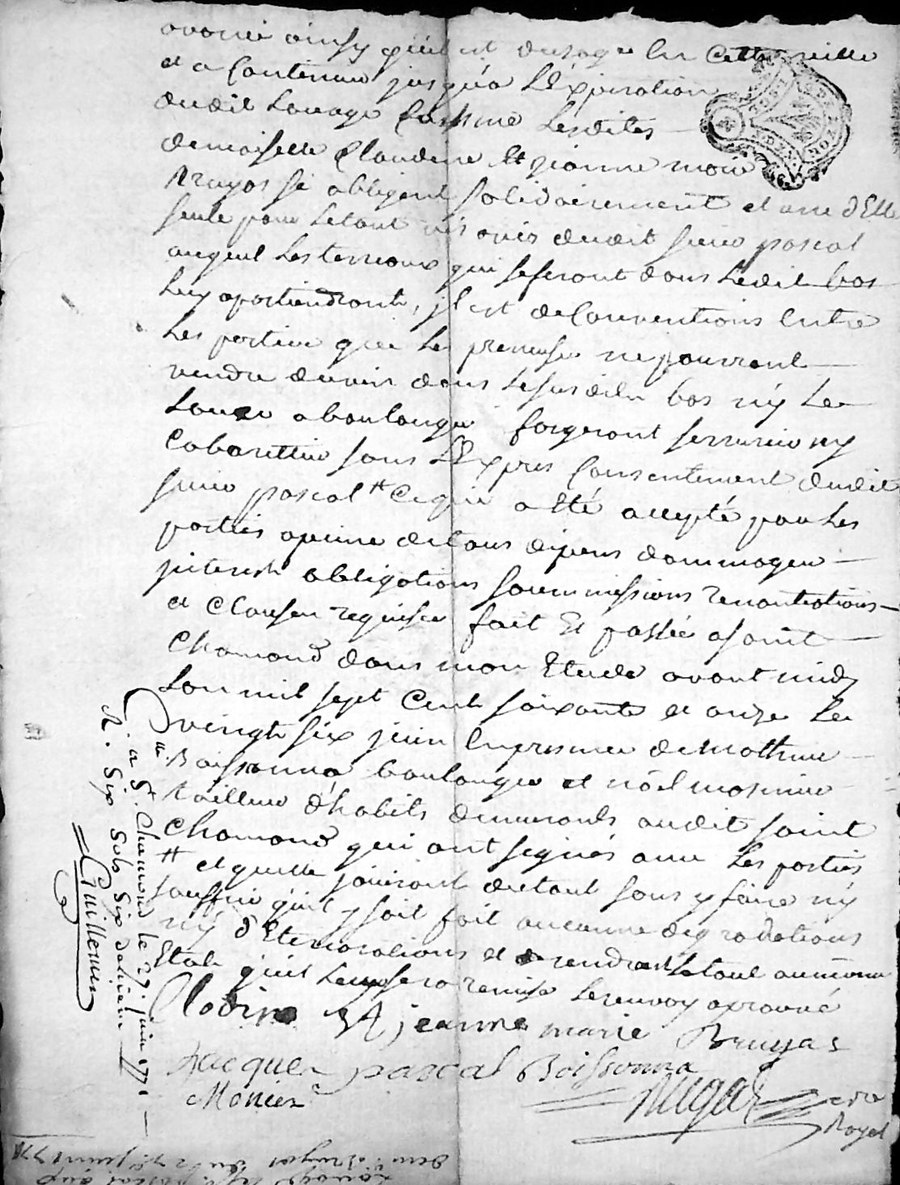 avance ainsy qu'il est d'usage en cette ville
et a continuer jusqu'a L'Expiration
dudit Louage comme Lesdites
demoiselle Claudine Et jeanne marie
Bruyas si obligent solidairement et une d'Elle
seule pour Letout vis avis dudit sieur pascal
auquel Les terreaux qui seferont dans Ledit bas
Luy apartiendront, jl est de Conventions Entre
Les parties que Les preneuses ne pourront
vendre du vin dans Lesusdit bas ny Le
Louer a boulanger forgeront serrurier ny
Cabarettier sans L'Expres Consentement dudit
sieur pascal # Ce qui a Eté accepté par Les
parties a peine de tous dépens dommages
jnterests obligations soummissions renontiations
et Clauses requises fait Et passée a saint
Chamond dans mon Etude avant midy
Lan mil sept Cent soixante et onze Le
vingt six juin En presence de
Boissonna boulanger et noël
tailleur d'habits demeurants audit saint
Chamond qui ont signés avec Les parties
# et quelle jouiront detout sans y faire ny
souffrir qu'il y soit fait aucune degradations
ny d'Etériorations et rendront Letout au meme
Etat qu'il Leur sera remise Lerenvoy aprouvé
Clodine Et jeanne marie Bruyas
Jacque pascal Boissonna
Monier
Royal
a St. Chamond le 27. juin 1771
R. Six Sols Six deniers